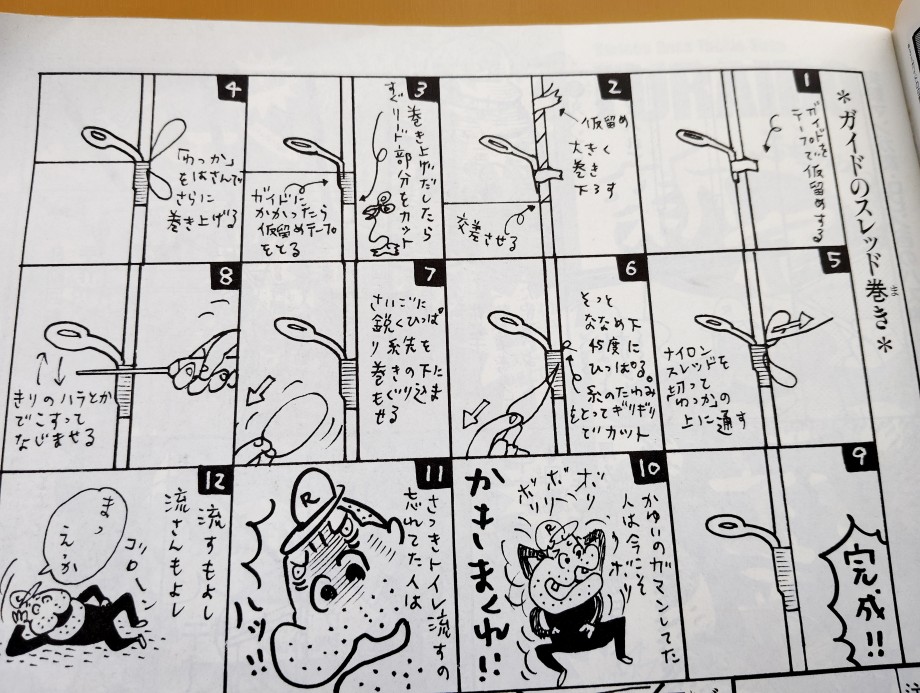 ＊ガイドのスレッド巻き＊
ま
1
ガイドを
テープで仮留めする
2
仮留め
大きく
巻き
下ろす
交差させる
3
巻き上げだしたら
すぐ
ド部分をカット
ガイドに
かかったら
仮留めテープ
をとる
4
「わっか」
をはさんで
さらに
巻き上げる
5
ナイロン
スレッドを
切って
「わっか」の
上に通す
6
そっと
ななめ下
45度に
ひっぱる。
糸のたわみ
をとってギリギリ
でカット
7
さいごに
鋭くひっぱ
り糸先を
巻きの下に
もぐり込ま
せる
8
きりのハラとか
でこすって
なじませる
9
完成!!
10
かゆいのガマンしてた
人は今こそ
かきまくれ!!
ボリ
ボリ
ボリ
ボリ
11
さっきトイレ流すの
忘れてた人は
R
ハッ!!
12
流すもよし
流さんもよし
まっ
えっか
ゴローン